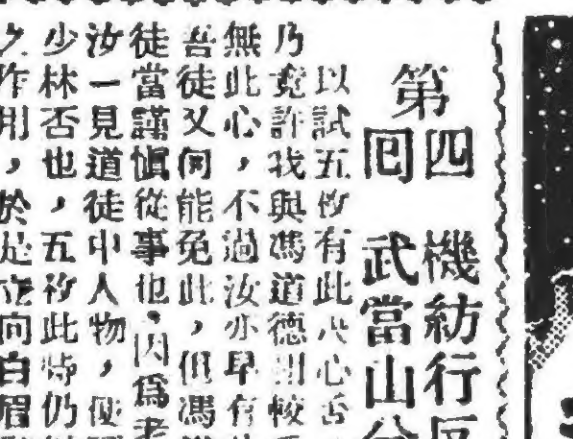 第四回
機紡行
武當山
以試五枚有此決心否
乃竟許我與馮道德一較
無此心，不過汝亦早有
吾徒又何能免此，但馮
徒當謹慎從事也，因爲
汝一見道徒中人物，便
少林否也，五枚此時仍
之作用，於是 向白眉